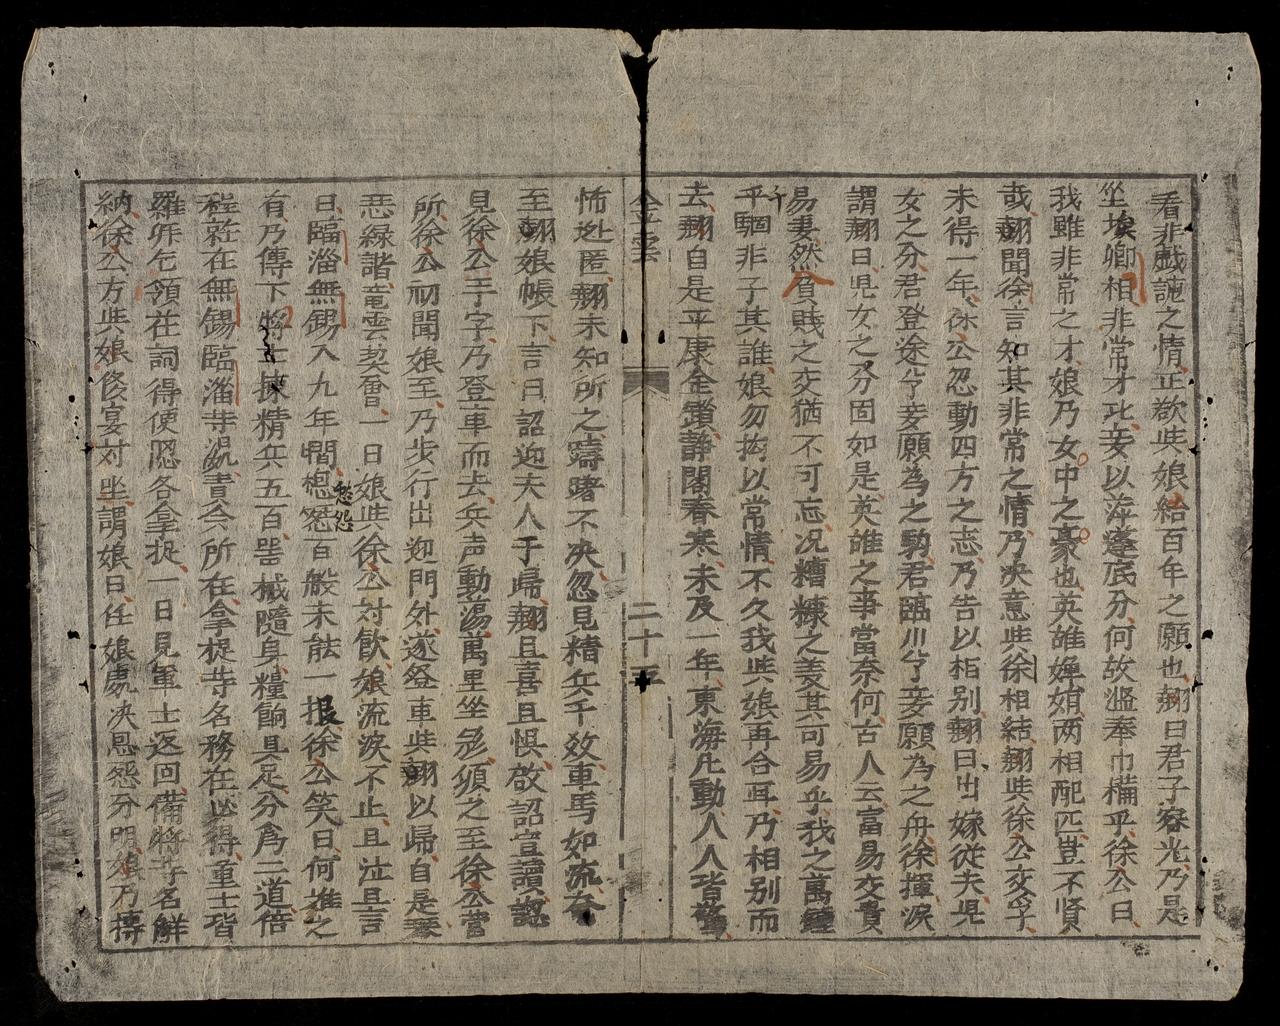 看非戱誣之情正欲與娘結百年之願也翹曰君子容光乃是
坐埃卿相非常才比妾以萍蓬底分何故盥奉巾櫛乎徐公曰
我雖非常之才娘乃女中之豪也英雄嬋娟两相配匹豈不賢
哉翹聞徐言知其非常之情乃决意與徐相結翹與徐公交孚
未得一年徐公忽動四方之志乃告以相别翹曰出嫁從夫児
女之分君登途兮妾願為之駒君臨川兮妾願為之舟徐揮淚
謂翹曰児女之分固如是英雄之事當奈何古人云富易交貴
易妻然貧賎之交猶不可忘况糟糠之妾其可易乎我之萬鍾
千駟非子其誰娘勿拘以常情不久我與娘再合耳乃相别而
去翹自是平康金鎖静閣春寒未及一年東海凡動人人皆驚
金雲
二十五
怖逃匿翹未知所之躊躇不决忽見精兵千效車馬如流奔
至翹娘帳下言曰詔迎夫人于歸翹且喜且惧敬詔宣讀認
見徐公手字乃登車而去兵声動湯萬里坐須之至徐公營
所徐公初聞娘至乃步行出迎門外遂登車與翹以歸自是
恶緑諧竜雲契會一日娘與徐公対飲娘流淚不止且泣且言
曰臨淄無錫入九年間愁怨百般未能一报徐公笑曰何难之
有乃傳下將士揀精兵五百噐械隨身糧餉具足分為二道倍
程莊在無錫臨淄寺泥責令所在拿捉寺名務在必得軍士皆
羅拜乞領在詞得便隠各拿捉一日見軍士返回備將寺名解
納徐公方與娘俊宴対坐謂娘曰任娘處决恩怨分明娘乃摶